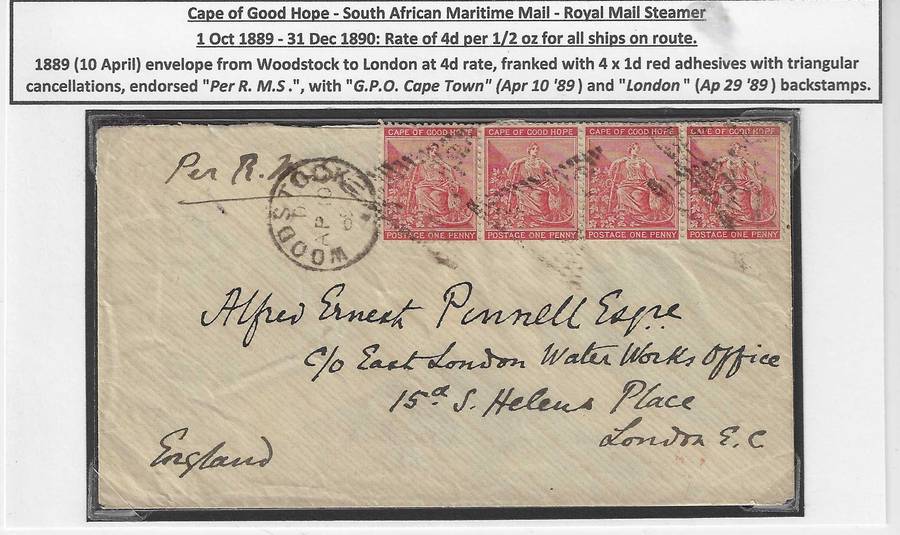 Cape of Good Hope - South African Maritime Mail - Royal Mail Steamer
1 Oct 1889 - 31 Dec 1890: Rate of 4d per 1/2 oz for all ships on route.
1889 (10 April) envelope from Woodstock to London at 4d rate, franked with 4 x 1d red adhesives with triangular
cancellations, endorsed "Per R. M.S.", with "G.P.O. Cape Town" (Apr 10 '89) and "London" (Ap 29 '89) backstamps.
CAPE OF GOOD HOPE CAPE OF GOOD HOPE CAPE OF GOOD HOPE CAPE OF GOOD HOPE
POSTAGE ONE PENNY POSTAGE ONE PENNY POSTAGE ONE PENNY POSTAGE ONE PENNY
Per R. M
WOODSTOCK
AP 10
Alfred Ernest Pennell Esqre
C/o East London Water Works Office
15d S. Helens Place
London E.C
England